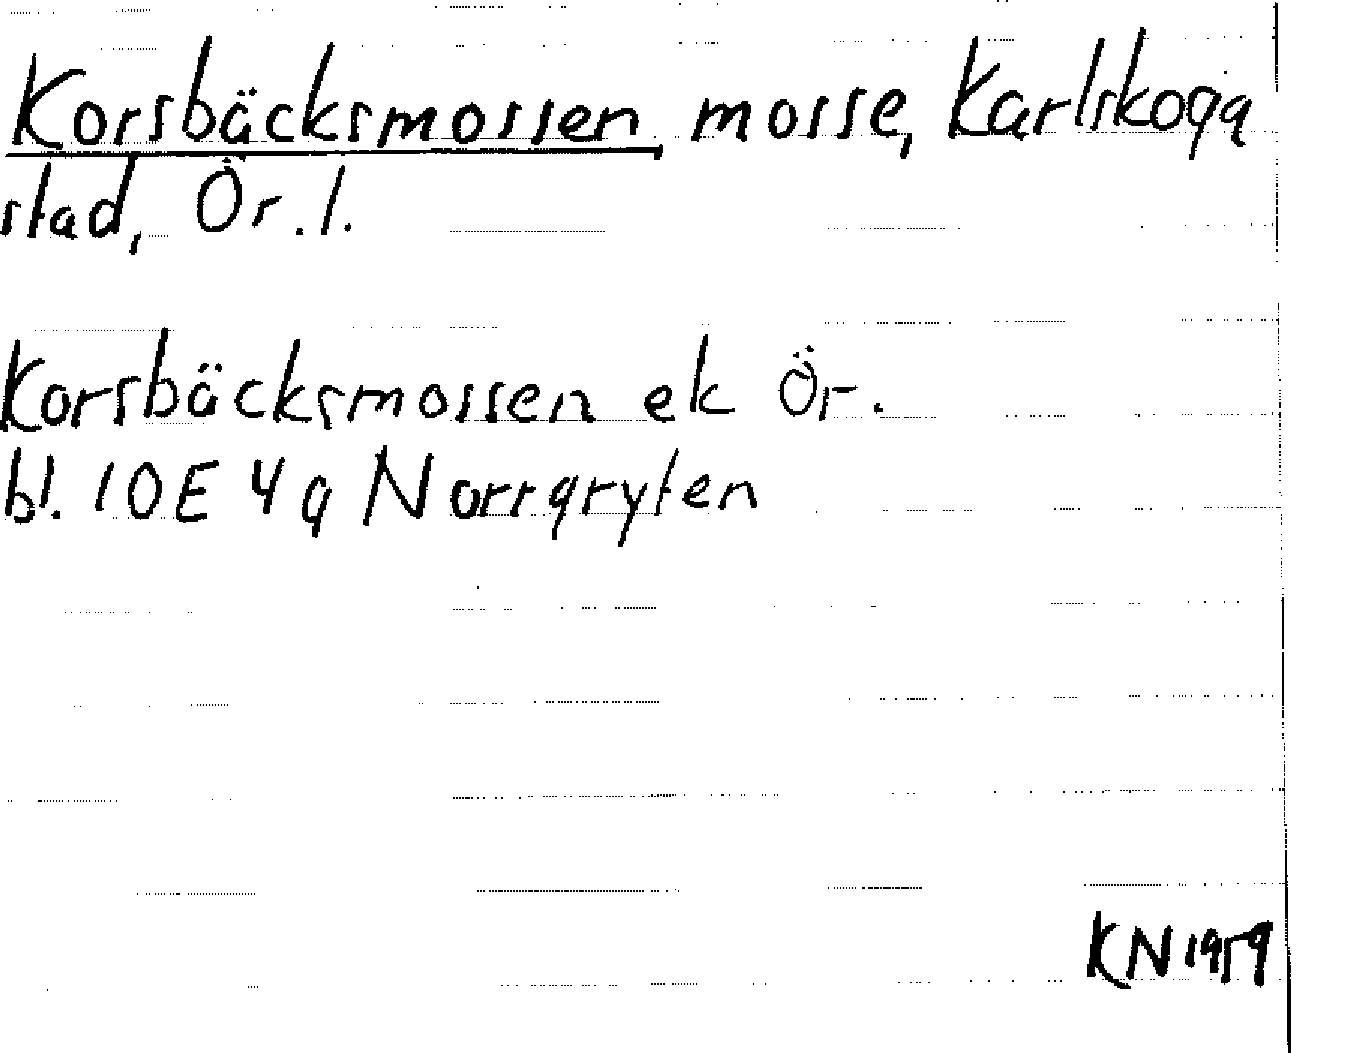 Korsbäcksmossen mosse, Karlskoga
stad, Ör. l.
Korsbäcksmossen ek Ör.
bl. 10E 4g Norrgryten
KN 1959